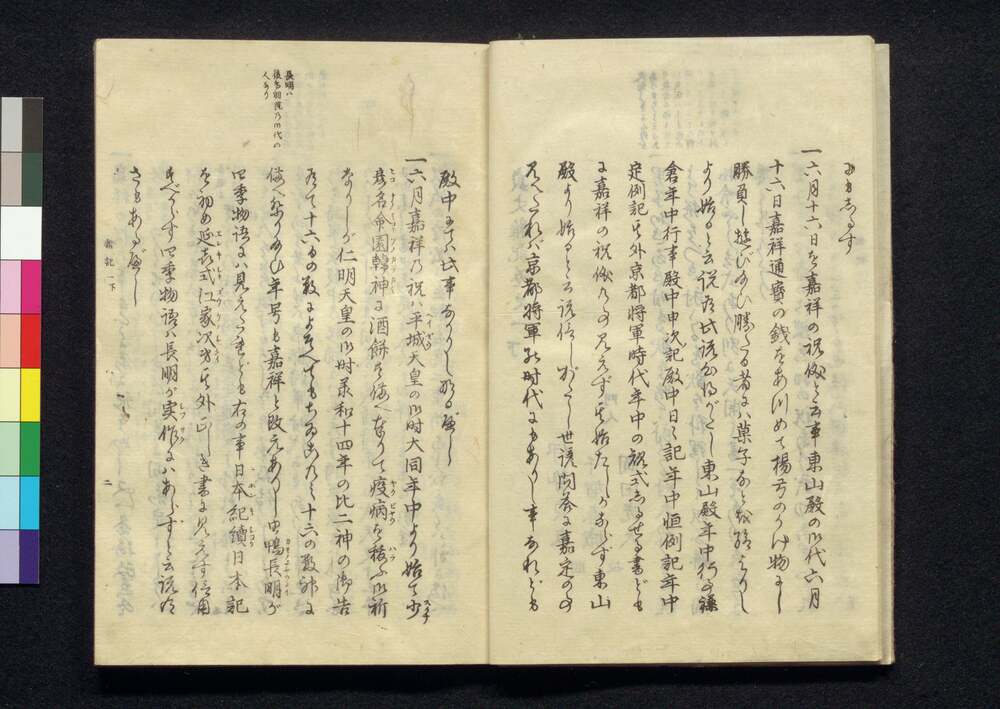 一六月十六日を嘉祥の祝儀と云事東山殿の御代六月
十六日嘉祥通寳の銭をあつめて楊弓のかけ物にし
勝負し遊び給ひ勝たる者には菓子など
より始ると云説有此説心得がたし東山殿年中行事鎌
倉年中行事殿中申次記殿中日々記年中恒例記年中
定例記其外京都将軍時代年中の規式しるせる書ども
に嘉祥の祝儀の事見えず其始たしかならず東山
殿より始るといふ説信じがたし世諺問答に嘉定の事
見へたれば京都将軍の時代にもありし事なれども
殿中にては此事なかりし成べし
一六月嘉祥乃祝ハ平城天皇の御時大同年中より始て少
彦名命園韓神に酒餅を備へ奉りて疫病を穣ふ祈
なりしが仁明天皇の御時承和十四年の比二神の御告
有て十六の数に
備へ年号も嘉祥と改元ありし由鴨長明が
四季物語には見えたれども右の事日本紀續日本記
を初め延喜式江家次第其外正しき書に見えず信用
すべからず四季物語ハ長明が実作にハあらずと云説も
さもあるべし
長明ハ
後鳥羽院乃御代の
人なり
二